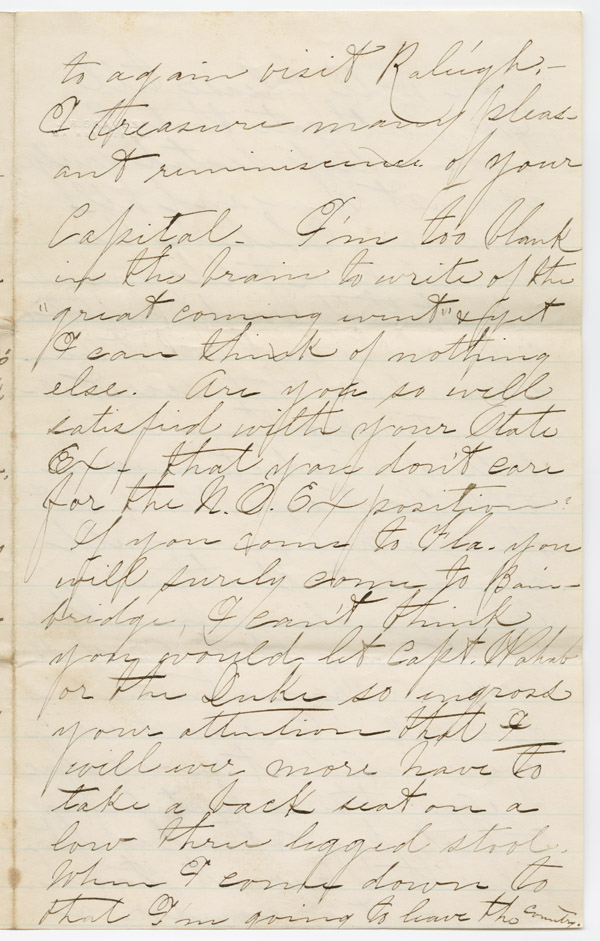 to again visit Raleigh.—
I treasure many pleas-
ant reminiscence of your
Capital - I'm too blank
in the brain to write of the
"great coming event" & yet
I can think of nothing
else. Are you so well
satisfied with your State
Ex- that you don't care
for the N.O. Exposition?
If you come to Fla. you
will surely come to Bain-
bridge, I can't think
you would let Capt. Wahab
or the Duke so ingross
your attention that I
will ever more have to
take a back seat on a
low three legged stool.
When I come down to
that I'm going to leave the country.